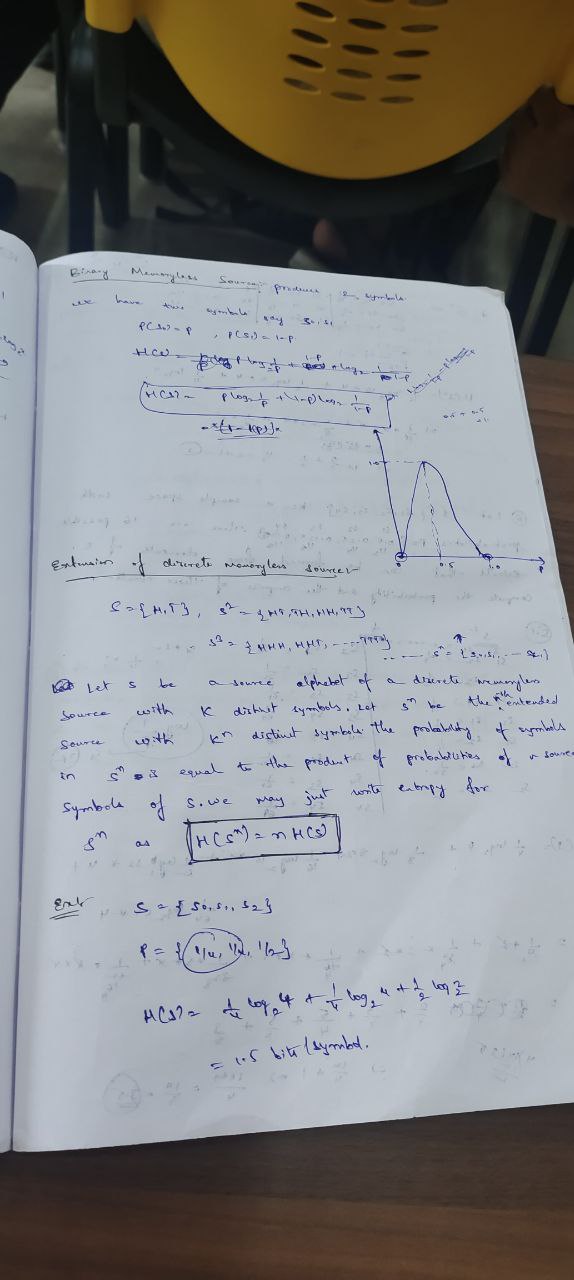 Binary Memoryless Source:- produces 2 symbols
we have two symbols say s0, s1
P(s0) = p , P(s1) = 1-p
H(s) =
H(s) = p log2 1/p + (1-p) log2 1/1-p
0.5 + 0.5
1.0
0 0.5 1.0 p
Extension of discrete memoryless source:-
S = {H,T}, S² = {HT, TH, HH, TT}
S³ = {HHH, HHT, ----- TTT}
Let S be a source alphabet of a discrete memoryless
source with K distinct symbols. Let Sⁿ be the nth extended
source with Kⁿ distinct symbols the probability of symbols
in Sⁿ is equal to the product of probabilities of n source
symbols of S. we may just write entropy for
Sⁿ as H(Sⁿ) = n H(S)
Ex:- S = {s0, s1, s2}
P = {1/4, 1/4, 1/2}
H(S) = 1/4 log2 4 + 1/4 log2 4 + 1/2 log2 2
= 1.5 bits/symbol.